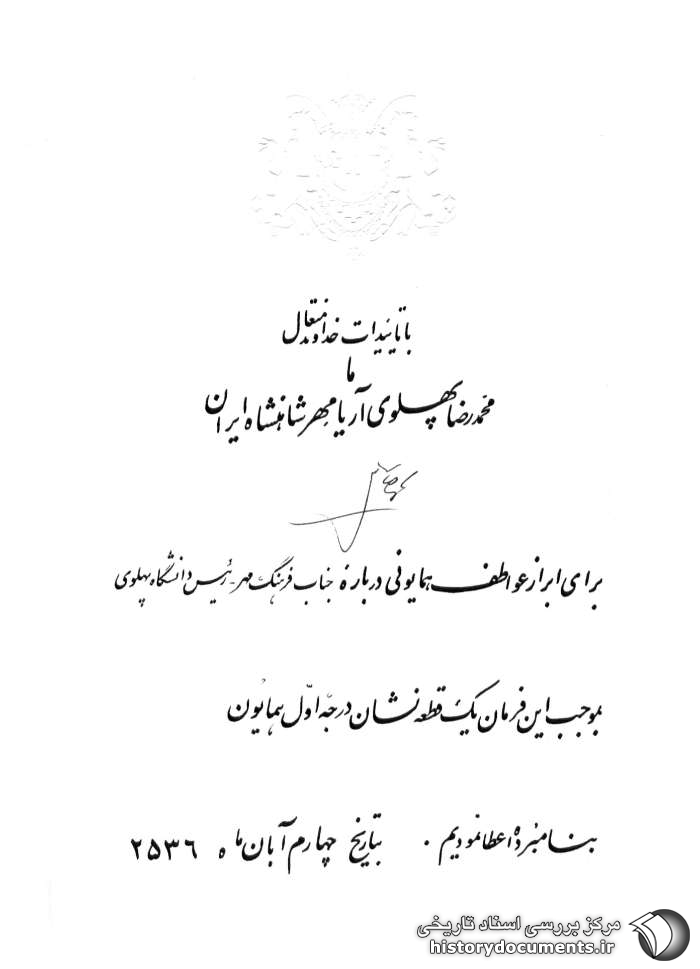 با تأییدات خداوند متعال
ما
محمدرضا پهلوی آریامهر شاهنشاه ایران
برای ابراز عواطف همایونی درباره جناب فرهنگ مهر - رئیس دانشگاه پهلوی
بموجب این فرمان یک قطعه نشان درجه اول همایون
بنامبرده اعطا نمودیم . بتاریخ چهارم آبان ماه ۲۵۳۶
مرکز بررسی اسناد تاریخی
historydocuments.ir